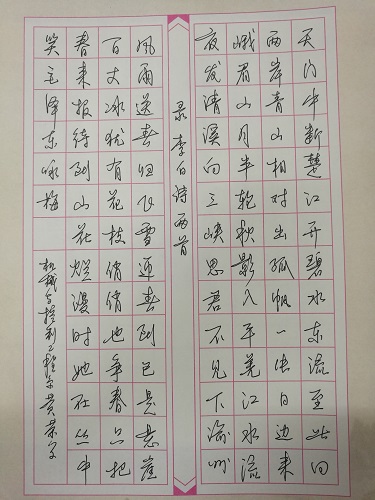 天门中断楚江开碧水东流至此回
两岸青山相对出孤帆一片日边来
峨眉山月半轮秋影入平羌江水流
夜发清溪向三峡思君不见下渝州
录李白诗两首
风雨送春归飞雪迎春到已是悬崖
百丈冰犹有花枝俏俏也争春只把
春来报待到山花烂漫时她在丛中
笑毛泽东咏梅
机械与控制工程